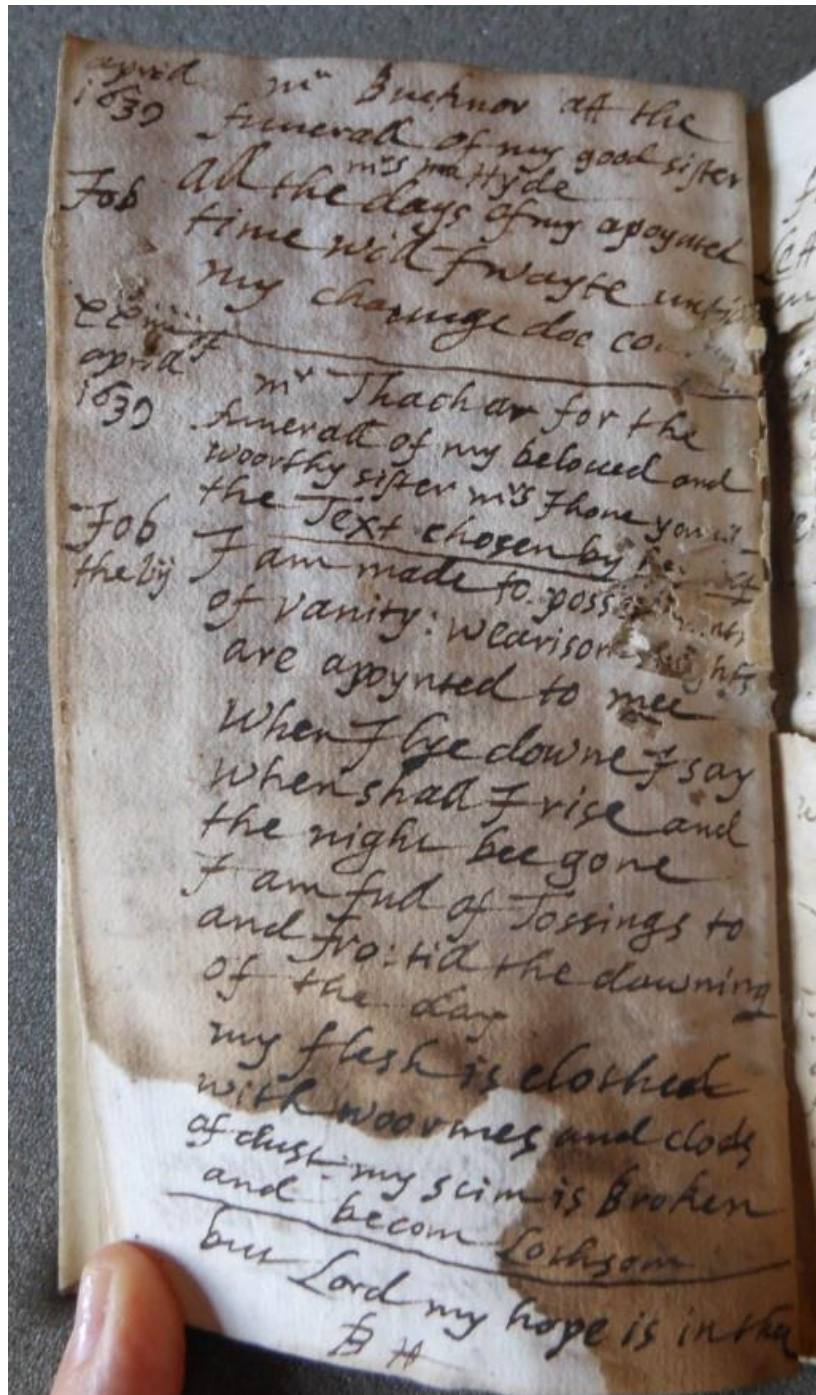 aprill mr Buckner att the
1639 funerall of my good sister
mrs ma Hyde
Job All the days of my apoynted
time will I wayte untill
my chaunge doe
aprill
1639 mr Thachar for the
funerall of my beloued and
woorthy sister mrs Jhone
the Text chosen by
Job I am made to
the vij of vanity:
are apoynted to mee
When I lye downe I say
when shall I rise and
the night bee gone
I am full of Tossings to
and fro: till the dawning
of the day
my flesh is clothed
with woormes and clods
of dust: my scinn is Broken
and becom Lothsom
but Lord my hope is in thee